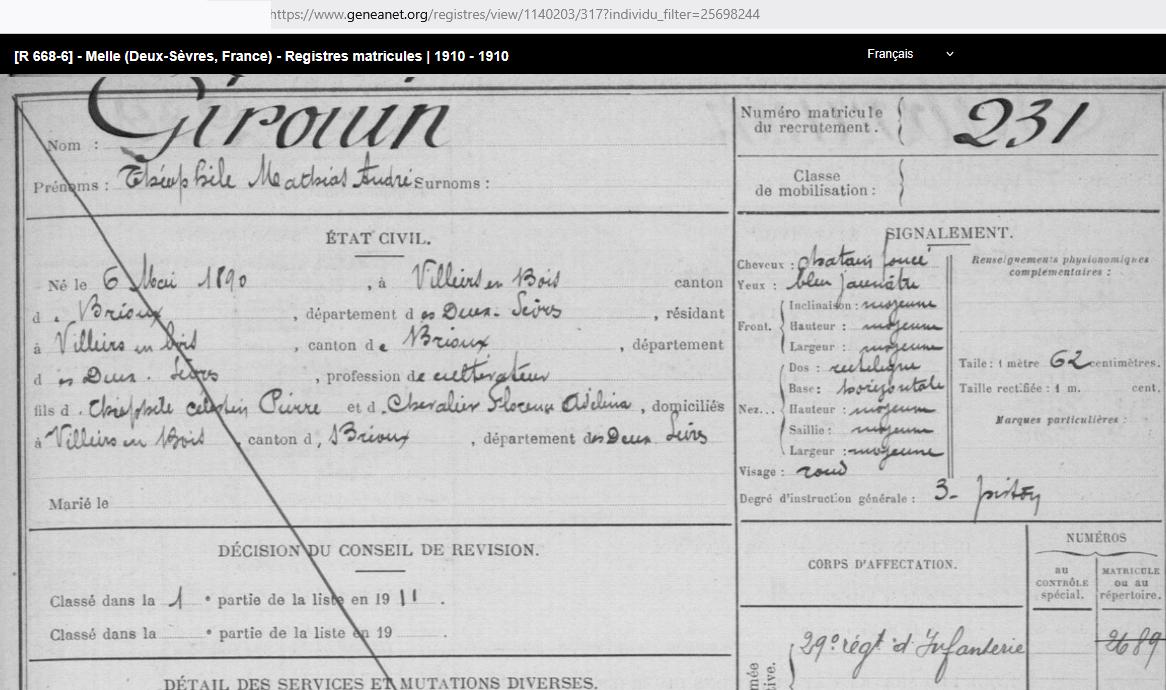 https://www.geneanet.org/registres/view/1140203/317?individu_filter=25698244
[R 668-6] - Melle (Deux-Sèvres, France) - Registres matricules | 1910 - 1910
Français
Nom : Girouin
Prénoms : Théophile Mathias André Surnoms :
Numéro matricule du recrutement. 231
Classe de mobilisation :
ÉTAT CIVIL.
Né le 6 Mai 1890, à Villiers en Bois canton
d. Brioux, département des Deux. Sèvres, résidant
à Villiers en bois, canton de Brioux, département
des Deux. Sèvres, profession de cultivateur
fils d. Théophile celestin Pierre et d. Chevalier Florence Adelina, domiciliés
à Villiers en Bois, canton d, Brioux, département des Deux Sèvres
Marié le
SIGNALEMENT.
Cheveux : chatain foncé
Yeux : bleu jaunâtre
Front. Inclinaison : moyenne
Hauteur : moyenne
Largeur : moyenne
Nez... Dos : rectiligne
Base : horizontale
Hauteur : moyenne
Saillie : moyenne
Largeur : moyenne
Visage : rond
Degré d'instruction générale : 3-
Renseignements physionomiques
complémentaires :
Taille : 1 mètre 62 centimètres.
Taille rectifiée : 1 m. cent.
Marques particulières :
DÉCISION DU CONSEIL DE REVISION.
Classé dans la 1 e partie de la liste en 1911.
Classé dans la e partie de la liste en 19 .
DÉTAIL DES SERVICES ET MUTATIONS DIVERSES.
CORPS D'AFFECTATION.
NUMÉROS
au
CONTRÔLE
spécial.
MATRICULE
ou au
répertoire.
29e régt d'Infanterie
2689